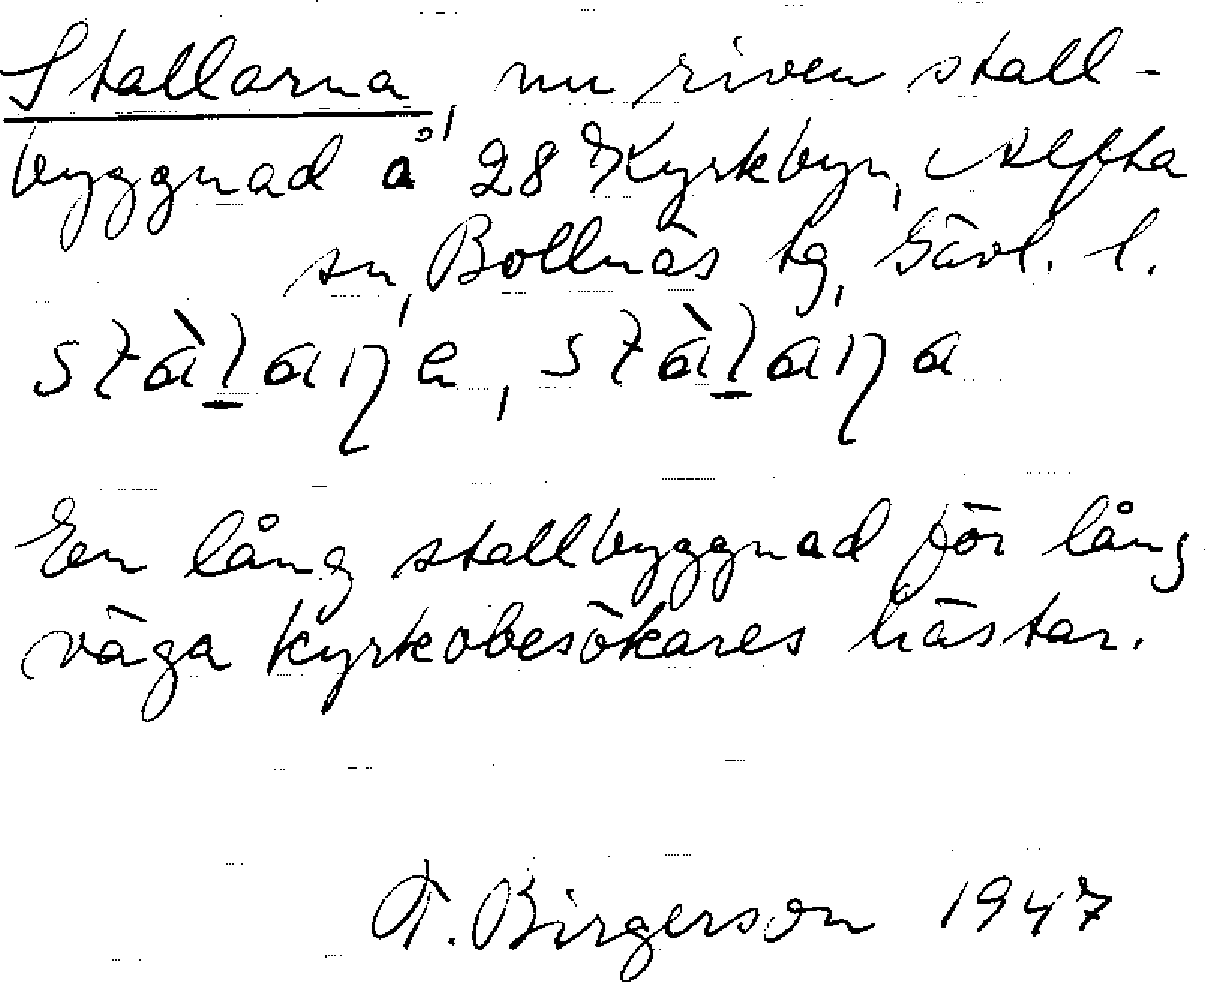 Stallarna, nu riven stall-
byggnad å 28 Kyrkbyn, Alfta
sn, Bollnäs tg, Gävl. l.
En lång stallbyggnad för lång
väga kyrkobesökares hästar.
F. Birgerson 1947